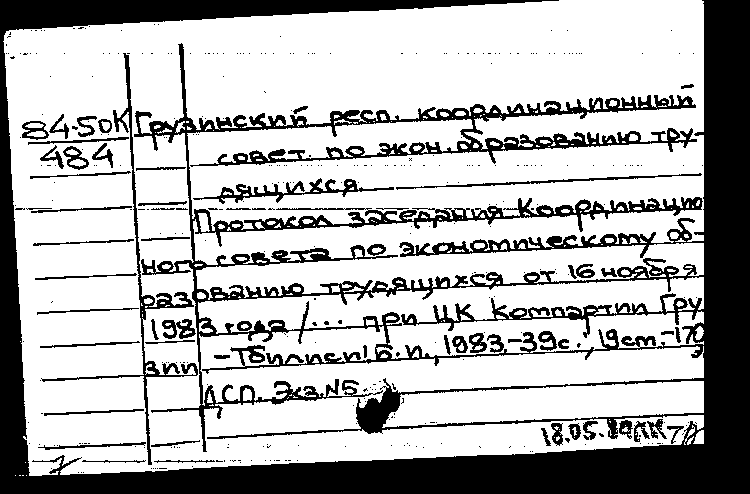 84-50К Грузинский респ. координационный
484 совет. по экон. образованию тру-
дящихся.
Протокол заседания Координацио
ного совета по экономическому об-
разованию трудящихся от 16 ноября
1983 года /... при ЦК Компартии Гру
зии. -Тбилиси: Б.и., 1983.-39с.; 19см.-170
э
ДСП. Экз.№5
18.05.84